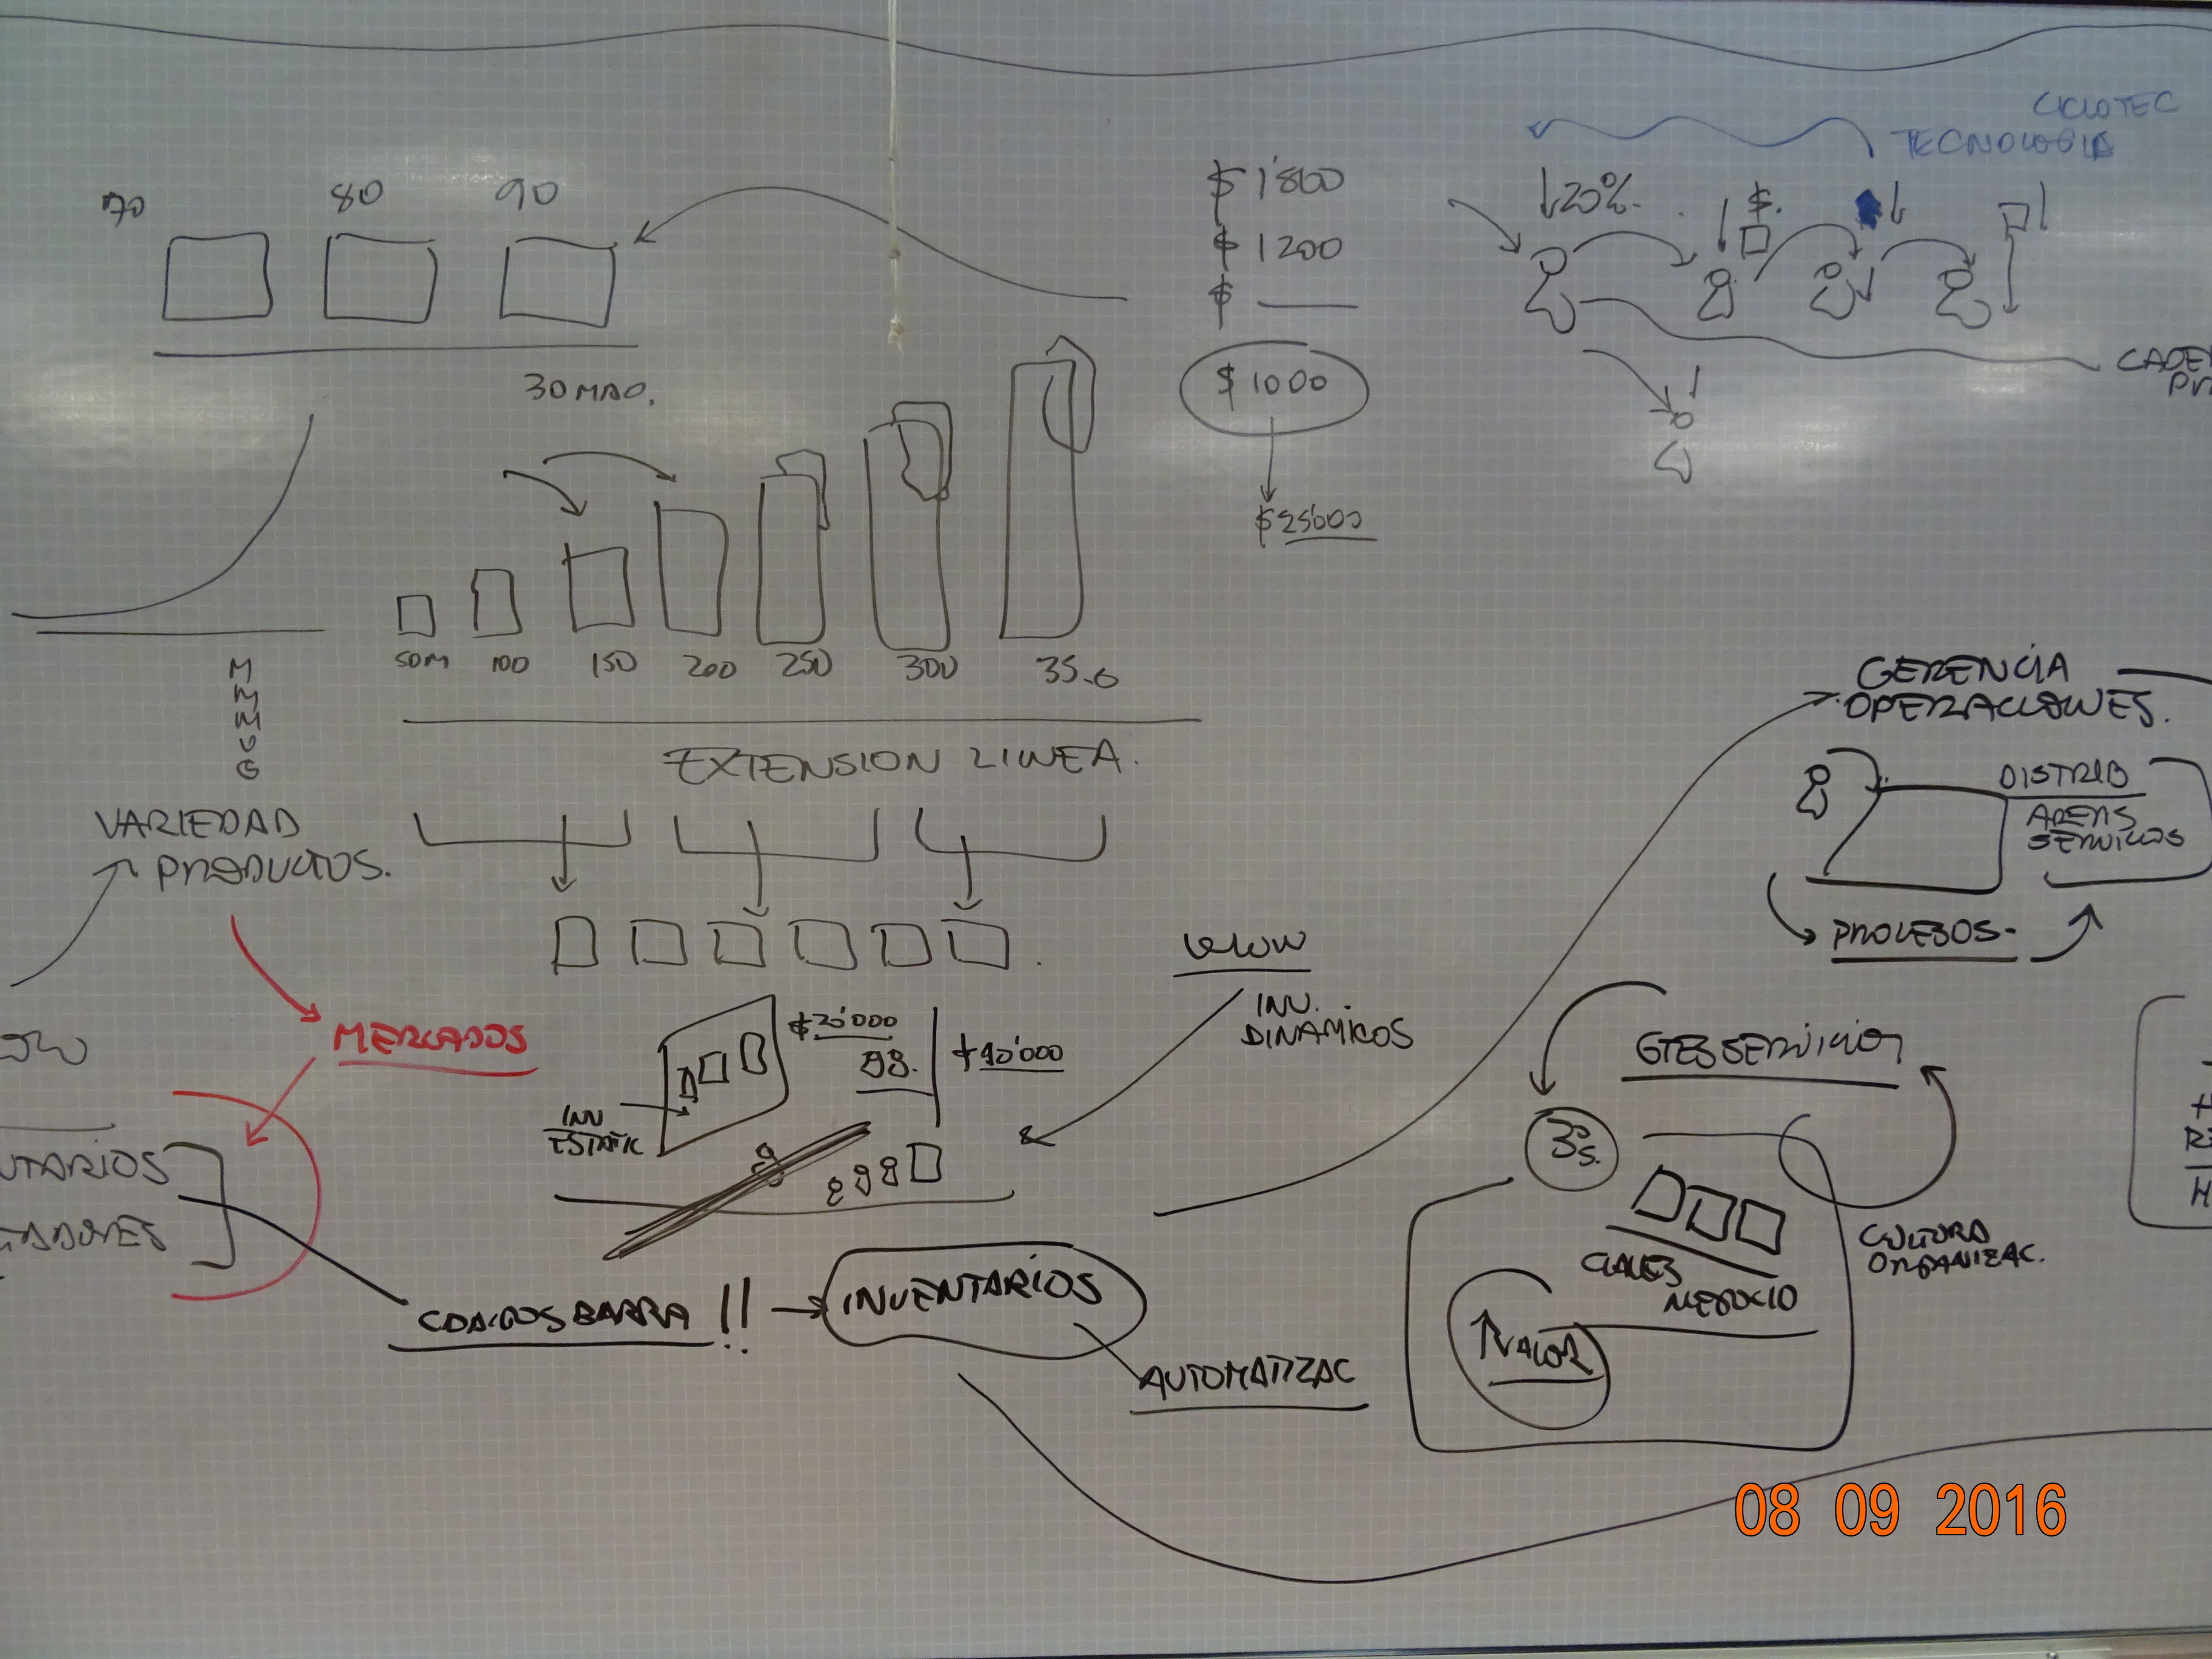 CICLOTEC
TECNOLOGIA
70
80
90
30 MAO.
$ 1'800
$ 1200
$
$ 1000
$25'000
↓20%.
$.
50M
100
150
200
250
300
35.0
EXTENSION LINEA.
M
M
M
U
G
VARIEDAD
PRODUCTOS.
MERCADOS
INV
ESTATIC
$20'000
98.
+40'000
INV.
DINAMICOS
CODIGOS BARRA !!
INVENTARIOS
AUTOMATIZAC
GERENCIA
OPERACIONES.
DISTRIB
AREAS
SERVICIOS
PROCESOS-
GTES SERVICIOS
3s.
CULTURA
ORGANIZAC.
CLAVES
NEGOCIO
↑VALOR
08 09 2016